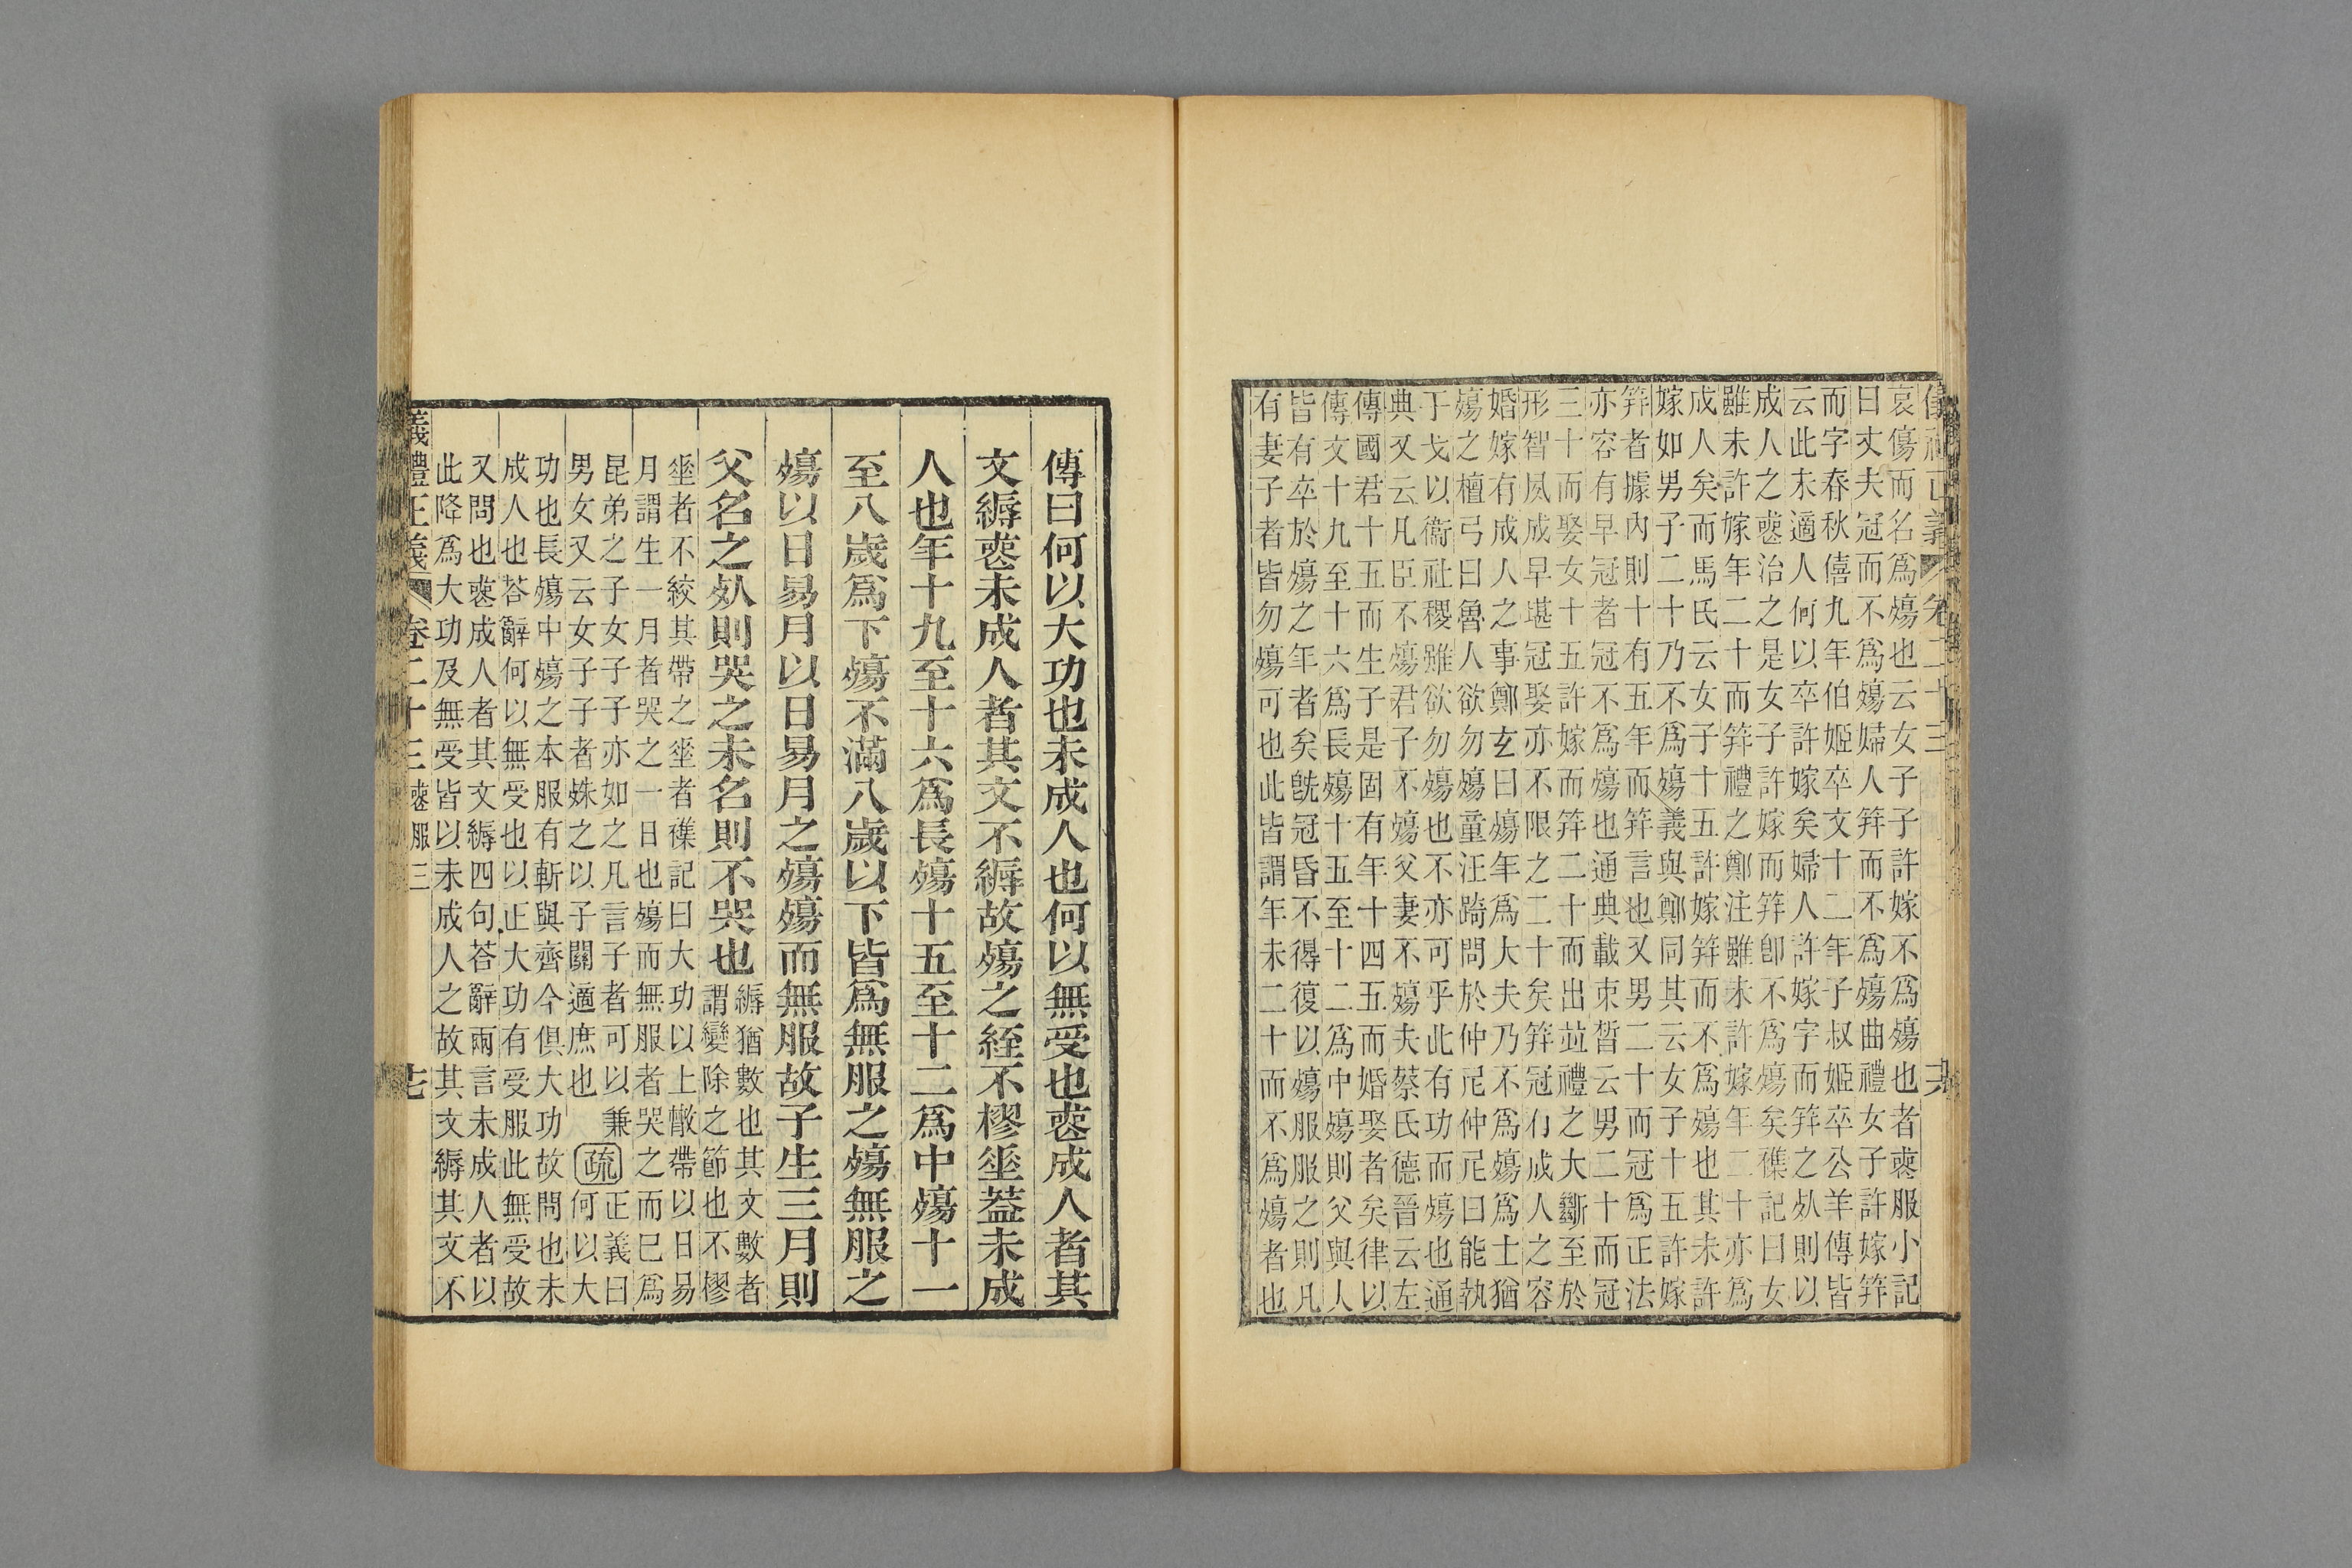 儀禮正義 卷二十三 十六
哀傷而名爲殤也云女子子許嫁不爲殤也者䘮服小記
曰丈夫冠而不爲殤婦人筓而不爲殤曲禮女子許嫁筓
而字春秋僖九年伯姬卒文十二年子叔姬卒公羊傳皆
云此未適人何以卒許嫁矣婦人許嫁字而筓之𣦸則以
成人之䘮治之是女子許嫁而筓卽不爲殤矣襍記曰女
雖未許嫁年二十而筓禮之鄭注雖未許嫁年二十亦爲
成人矣而馬氏云女子十五許嫁筓而不爲殤也其未許
嫁如男子二十乃不爲殤義與鄭同其云女子十五許嫁
筓者據內則十有五年而筓言也又男二十而冠爲正法
亦容有早冠者冠不爲殤也通典載束晳云男二十而冠
三十而娶女十五許嫁而筓二十而出竝禮之大斷至於
形智夙成早堪冠娶亦不限之二十矣筓冠有成人之容
婚嫁有成人之事鄭玄曰殤年爲大夫乃不爲殤爲士猶
殤之檀弓曰魯人欲勿殤童汪踦問於仲尼仲尼曰能執
于戈以衞社稷雖欲勿殤也不亦可乎此有功而殤也通
典又云凡臣不殤君子不殤父妻不殤夫蔡氏德晉云左
傳國君十五而生子是固有年十四五而婚娶者矣律以
傳文十九至十六爲長殤十五至十二爲中殤則父與人
皆有卒於殤之年者矣旣冠昏不得復以殤服服之則凡
有妻子者皆勿殤可也此皆謂年未二十而不爲殤者也
傳曰何以大功也未成人也何以無受也䘮成人者其
文縟䘮未成人者其文不縟故殤之絰不樛垂蓋未成
人也年十九至十六爲長殤十五至十二爲中殤十一
至八歲爲下殤不滿八歲以下皆爲無服之殤無服之
殤以日易月以日易月之殤殤而無服故子生三月則
父名之𣦸則哭之未名則不哭也
縟猶數也其文數者
謂變除之節也不樛
垂者不絞其帶之垂者襍記曰大功以上散帶以日易
月謂生一月者哭之一日也殤而無服者哭之而已爲
昆弟之子女子子亦如之凡言子者可以兼
男女又云女子子者殊之以子關適庶也
疏
正義曰
何以大
功也長殤中殤之本服有斬與齊今俱大功故問也未
成人也荅辭何以無受也以正大功有受服此無受故
又問也䘮成人者其文縟四句荅辭兩言未成人者以
此降爲大功及無受皆以未成人之故其文縟其文不
義禮正義 卷二十三 䘮服三 十七